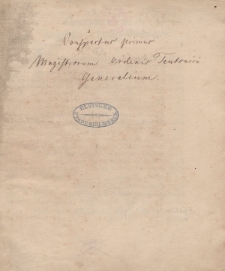 Conspectus primus
Magistrorum Ordinis Teutonici
Generalium.